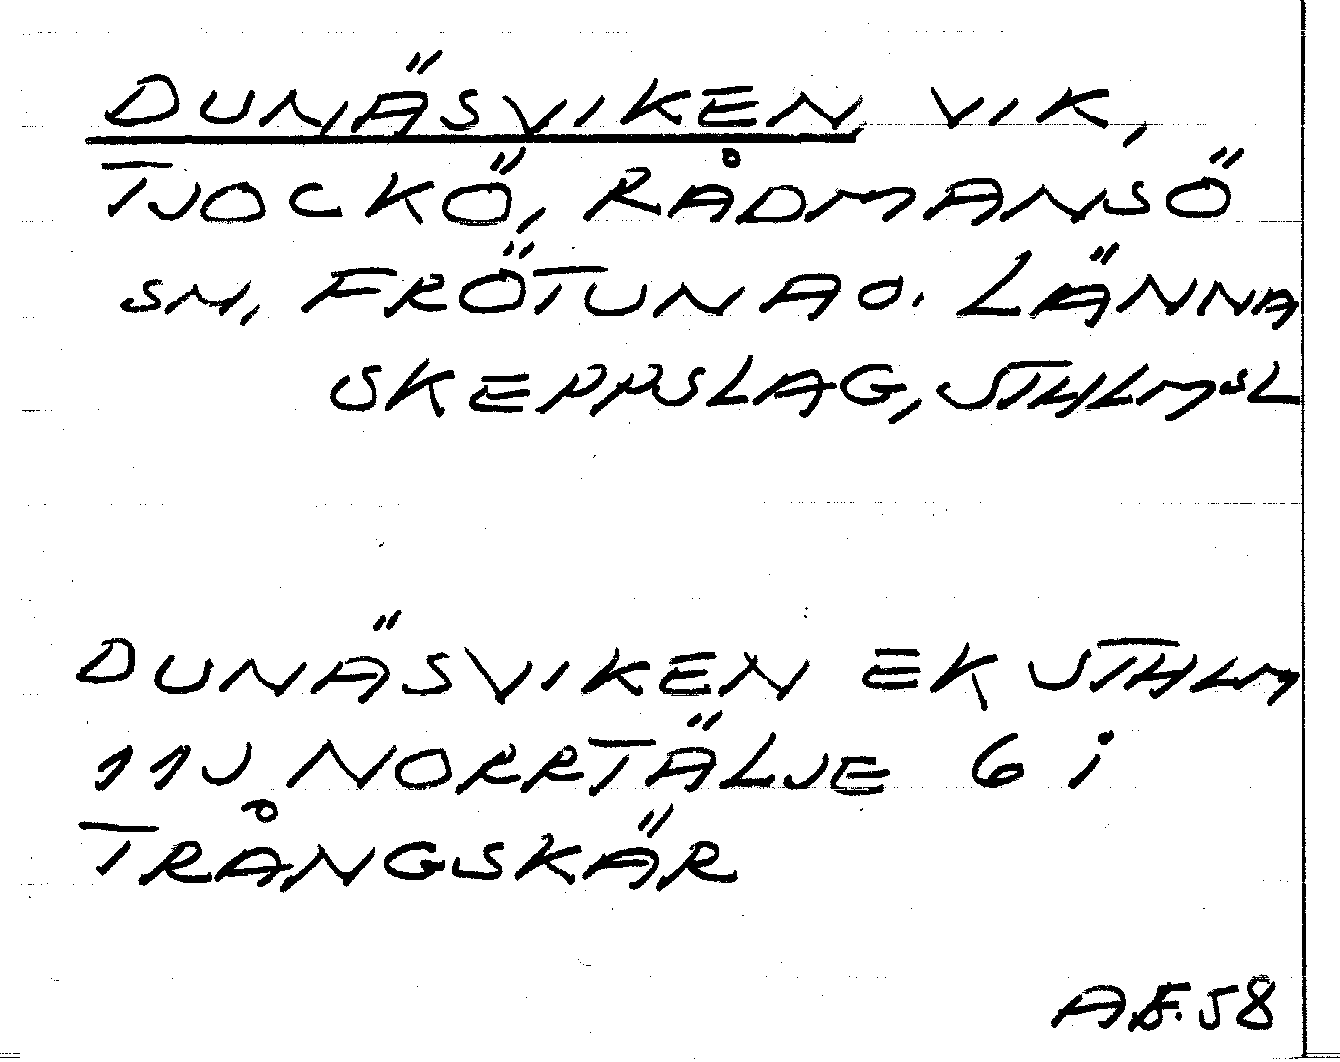 DUNÄSVIKEN VIK,
TJOCKÖ, RÅDMANSÖ
SN, FRÖTUNA O. LÄNNA
SKEPPSLAG, STHLMSL
DUNÄSVIKEN EK STHLM
11J NORRTÄLJE 6 i
TRÅNGSKÄR
A.F. 58